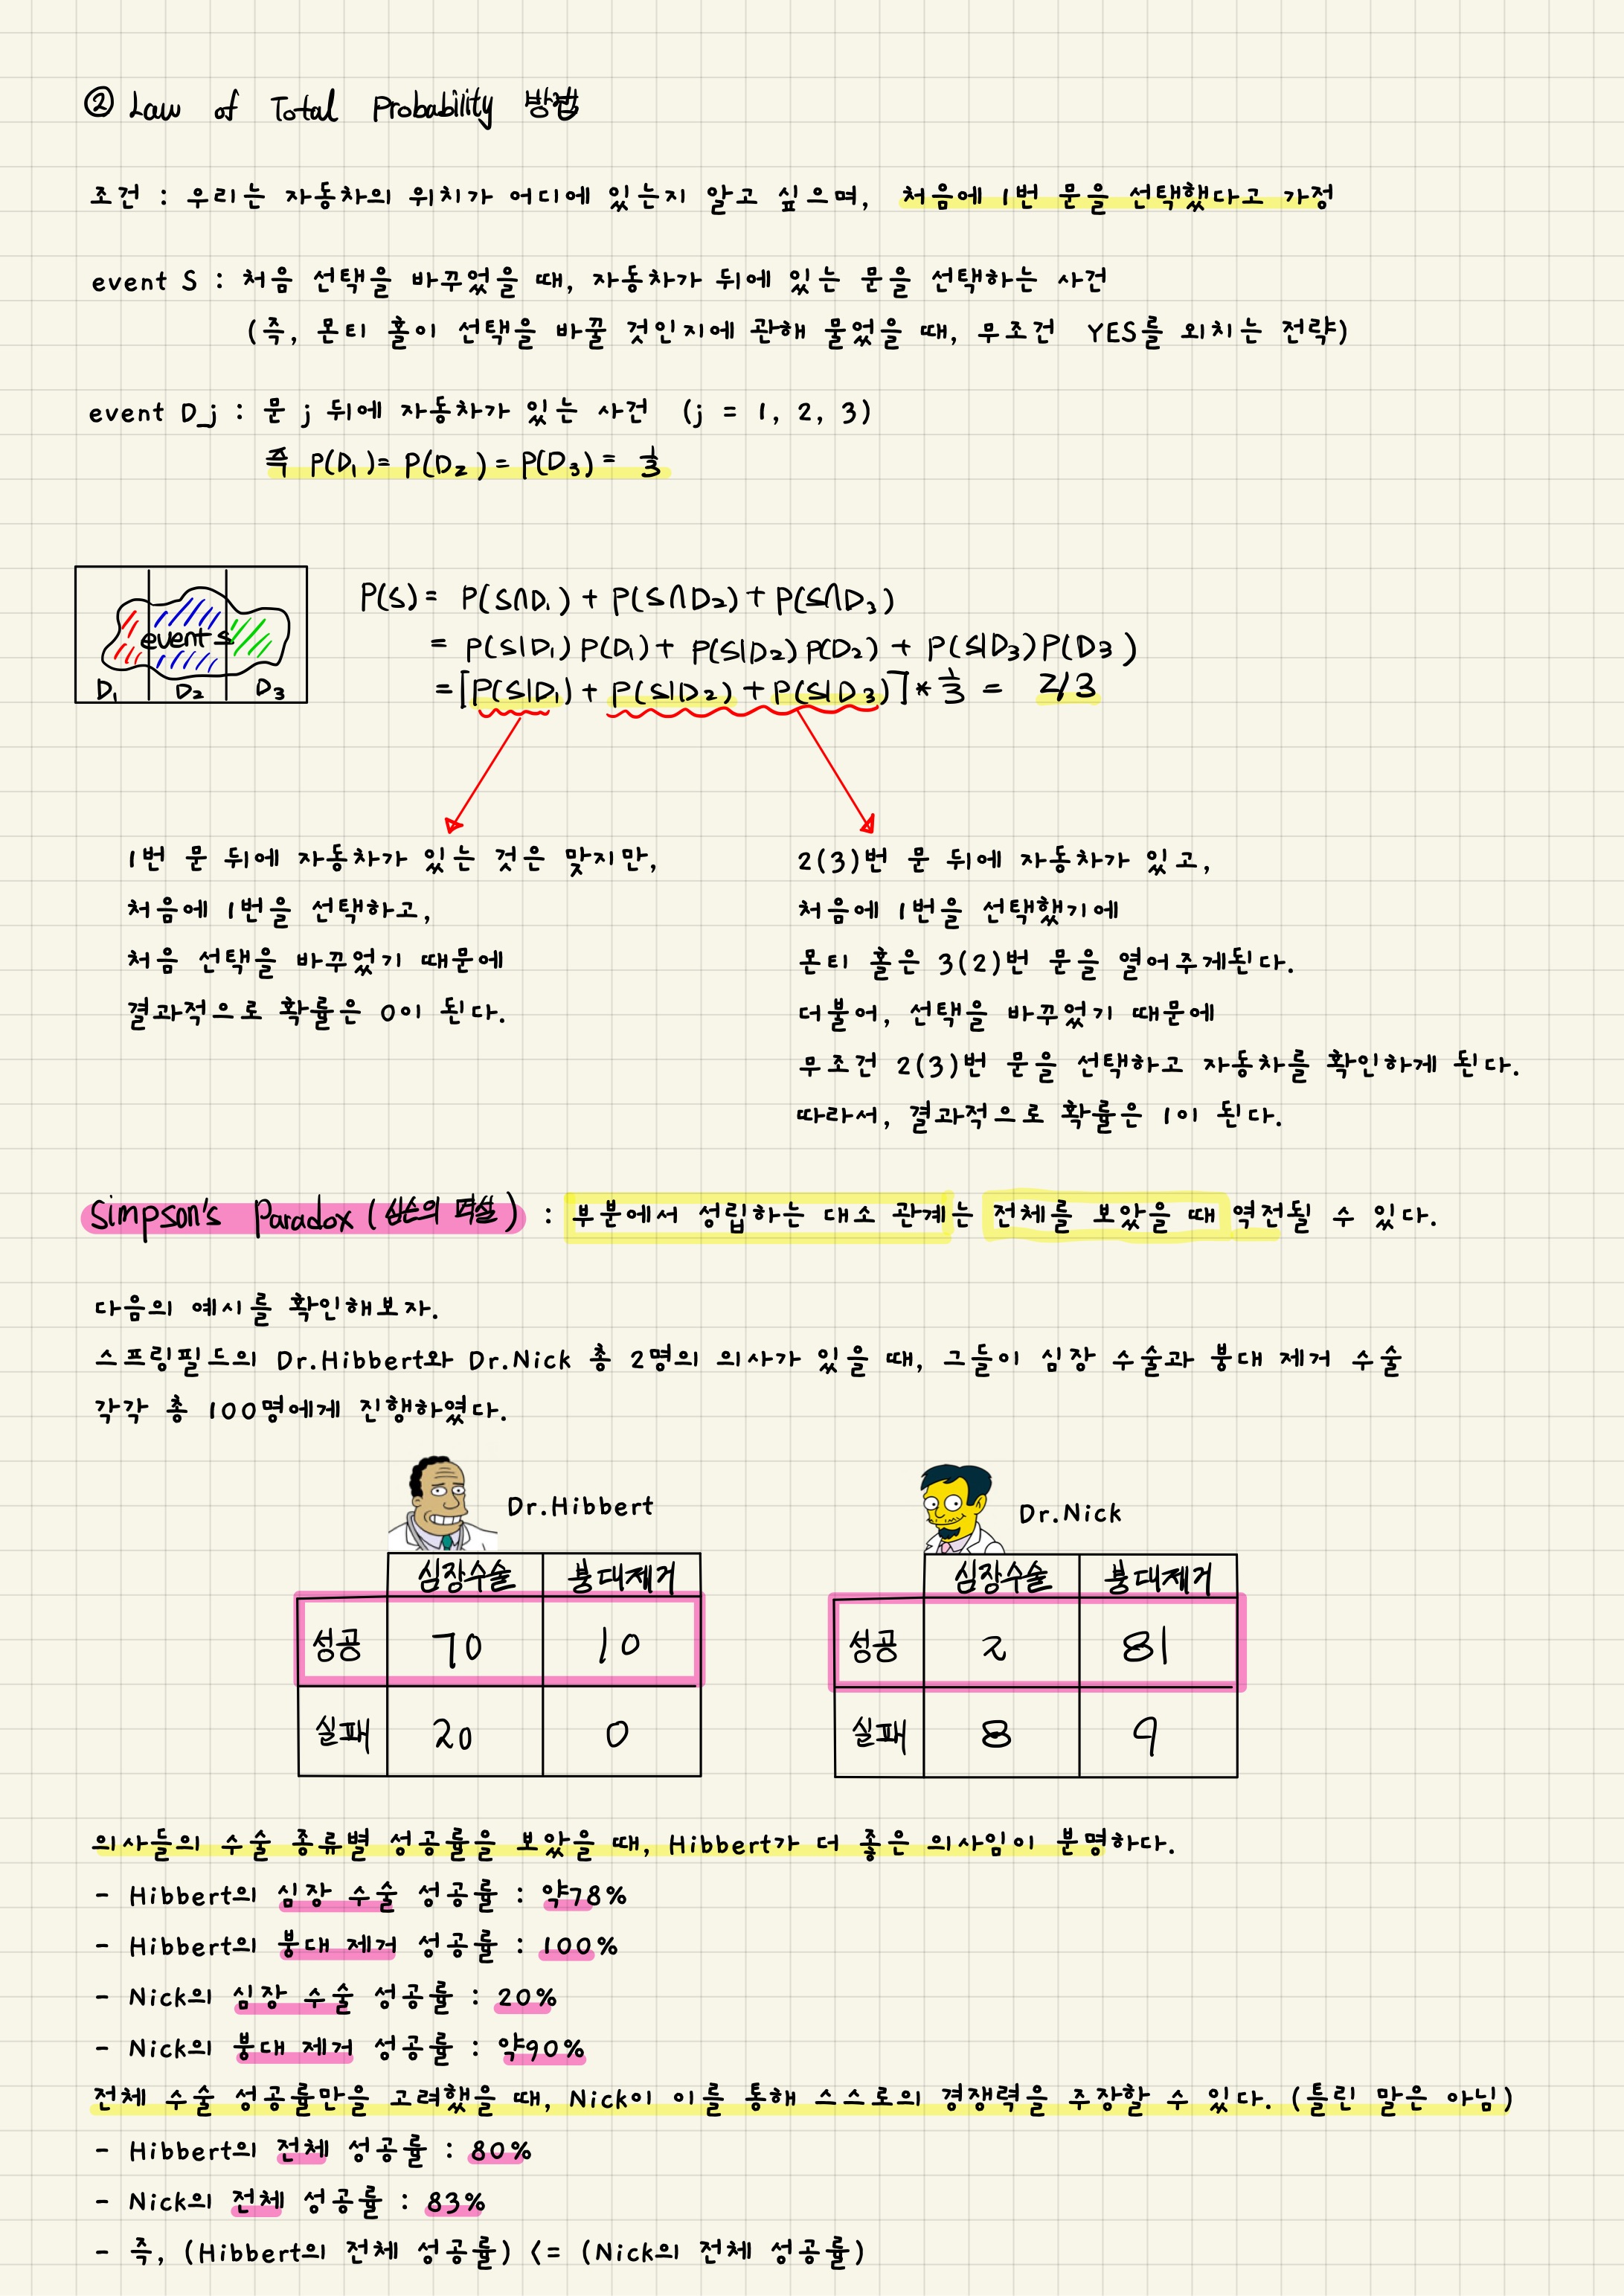 ② Law of Total Probability 방법
조건 : 우리는 자동차의 위치가 어디에 있는지 알고 싶으며, 처음에 1번 문을 선택했다고 가정
event S : 처음 선택을 바꾸었을 때, 자동차가 뒤에 있는 문을 선택하는 사건
(즉, 몬티 홀이 선택을 바꿀 것인지에 관해 물었을 때, 무조건 YES를 외치는 전략)
event D_j : 문 j 뒤에 자동차가 있는 사건 (j = 1, 2, 3)
즉 P(D₁) = P(D₂) = P(D₃) = 1/3
event S
D₁ D₂ D₃
P(S) = P(S∩D₁) + P(S∩D₂) + P(S∩D₃)
= P(S|D₁) P(D₁) + P(S|D₂) P(D₂) + P(S|D₃) P(D₃)
= [P(S|D₁) + P(S|D₂) + P(S|D₃)] * 1/3 = 2/3
1번 문 뒤에 자동차가 있는 것은 맞지만,
처음에 1번을 선택하고,
처음 선택을 바꾸었기 때문에
결과적으로 확률은 0이 된다.
2(3)번 문 뒤에 자동차가 있고,
처음에 1번을 선택했기에
몬티 홀은 3(2)번 문을 열어주게된다.
더불어, 선택을 바꾸었기 때문에
무조건 2(3)번 문을 선택하고 자동차를 확인하게 된다.
따라서, 결과적으로 확률은 1이 된다.
Simpson's Paradox (심슨의 역설) : 부분에서 성립하는 대소 관계는 전체를 보았을 때 역전될 수 있다.
다음의 예시를 확인해보자.
스프링필드의 Dr.Hibbert와 Dr.Nick 총 2명의 의사가 있을 때, 그들이 심장 수술과 붕대 제거 수술
각각 총 100명에게 진행하였다.
Dr.Hibbert
심장수술 붕대제거
성공 70 10
실패 20 0
Dr.Nick
심장수술 붕대제거
성공 2 81
실패 8 9
의사들의 수술 종류별 성공률을 보았을 때, Hibbert가 더 좋은 의사임이 분명하다.
- Hibbert의 심장 수술 성공률 : 약78%
- Hibbert의 붕대 제거 성공률 : 100%
- Nick의 심장 수술 성공률 : 20%
- Nick의 붕대 제거 성공률 : 약90%
전체 수술 성공률만을 고려했을 때, Nick이 이를 통해 스스로의 경쟁력을 주장할 수 있다. (틀린 말은 아님)
- Hibbert의 전체 성공률 : 80%
- Nick의 전체 성공률 : 83%
- 즉, (Hibbert의 전체 성공률) <= (Nick의 전체 성공률)